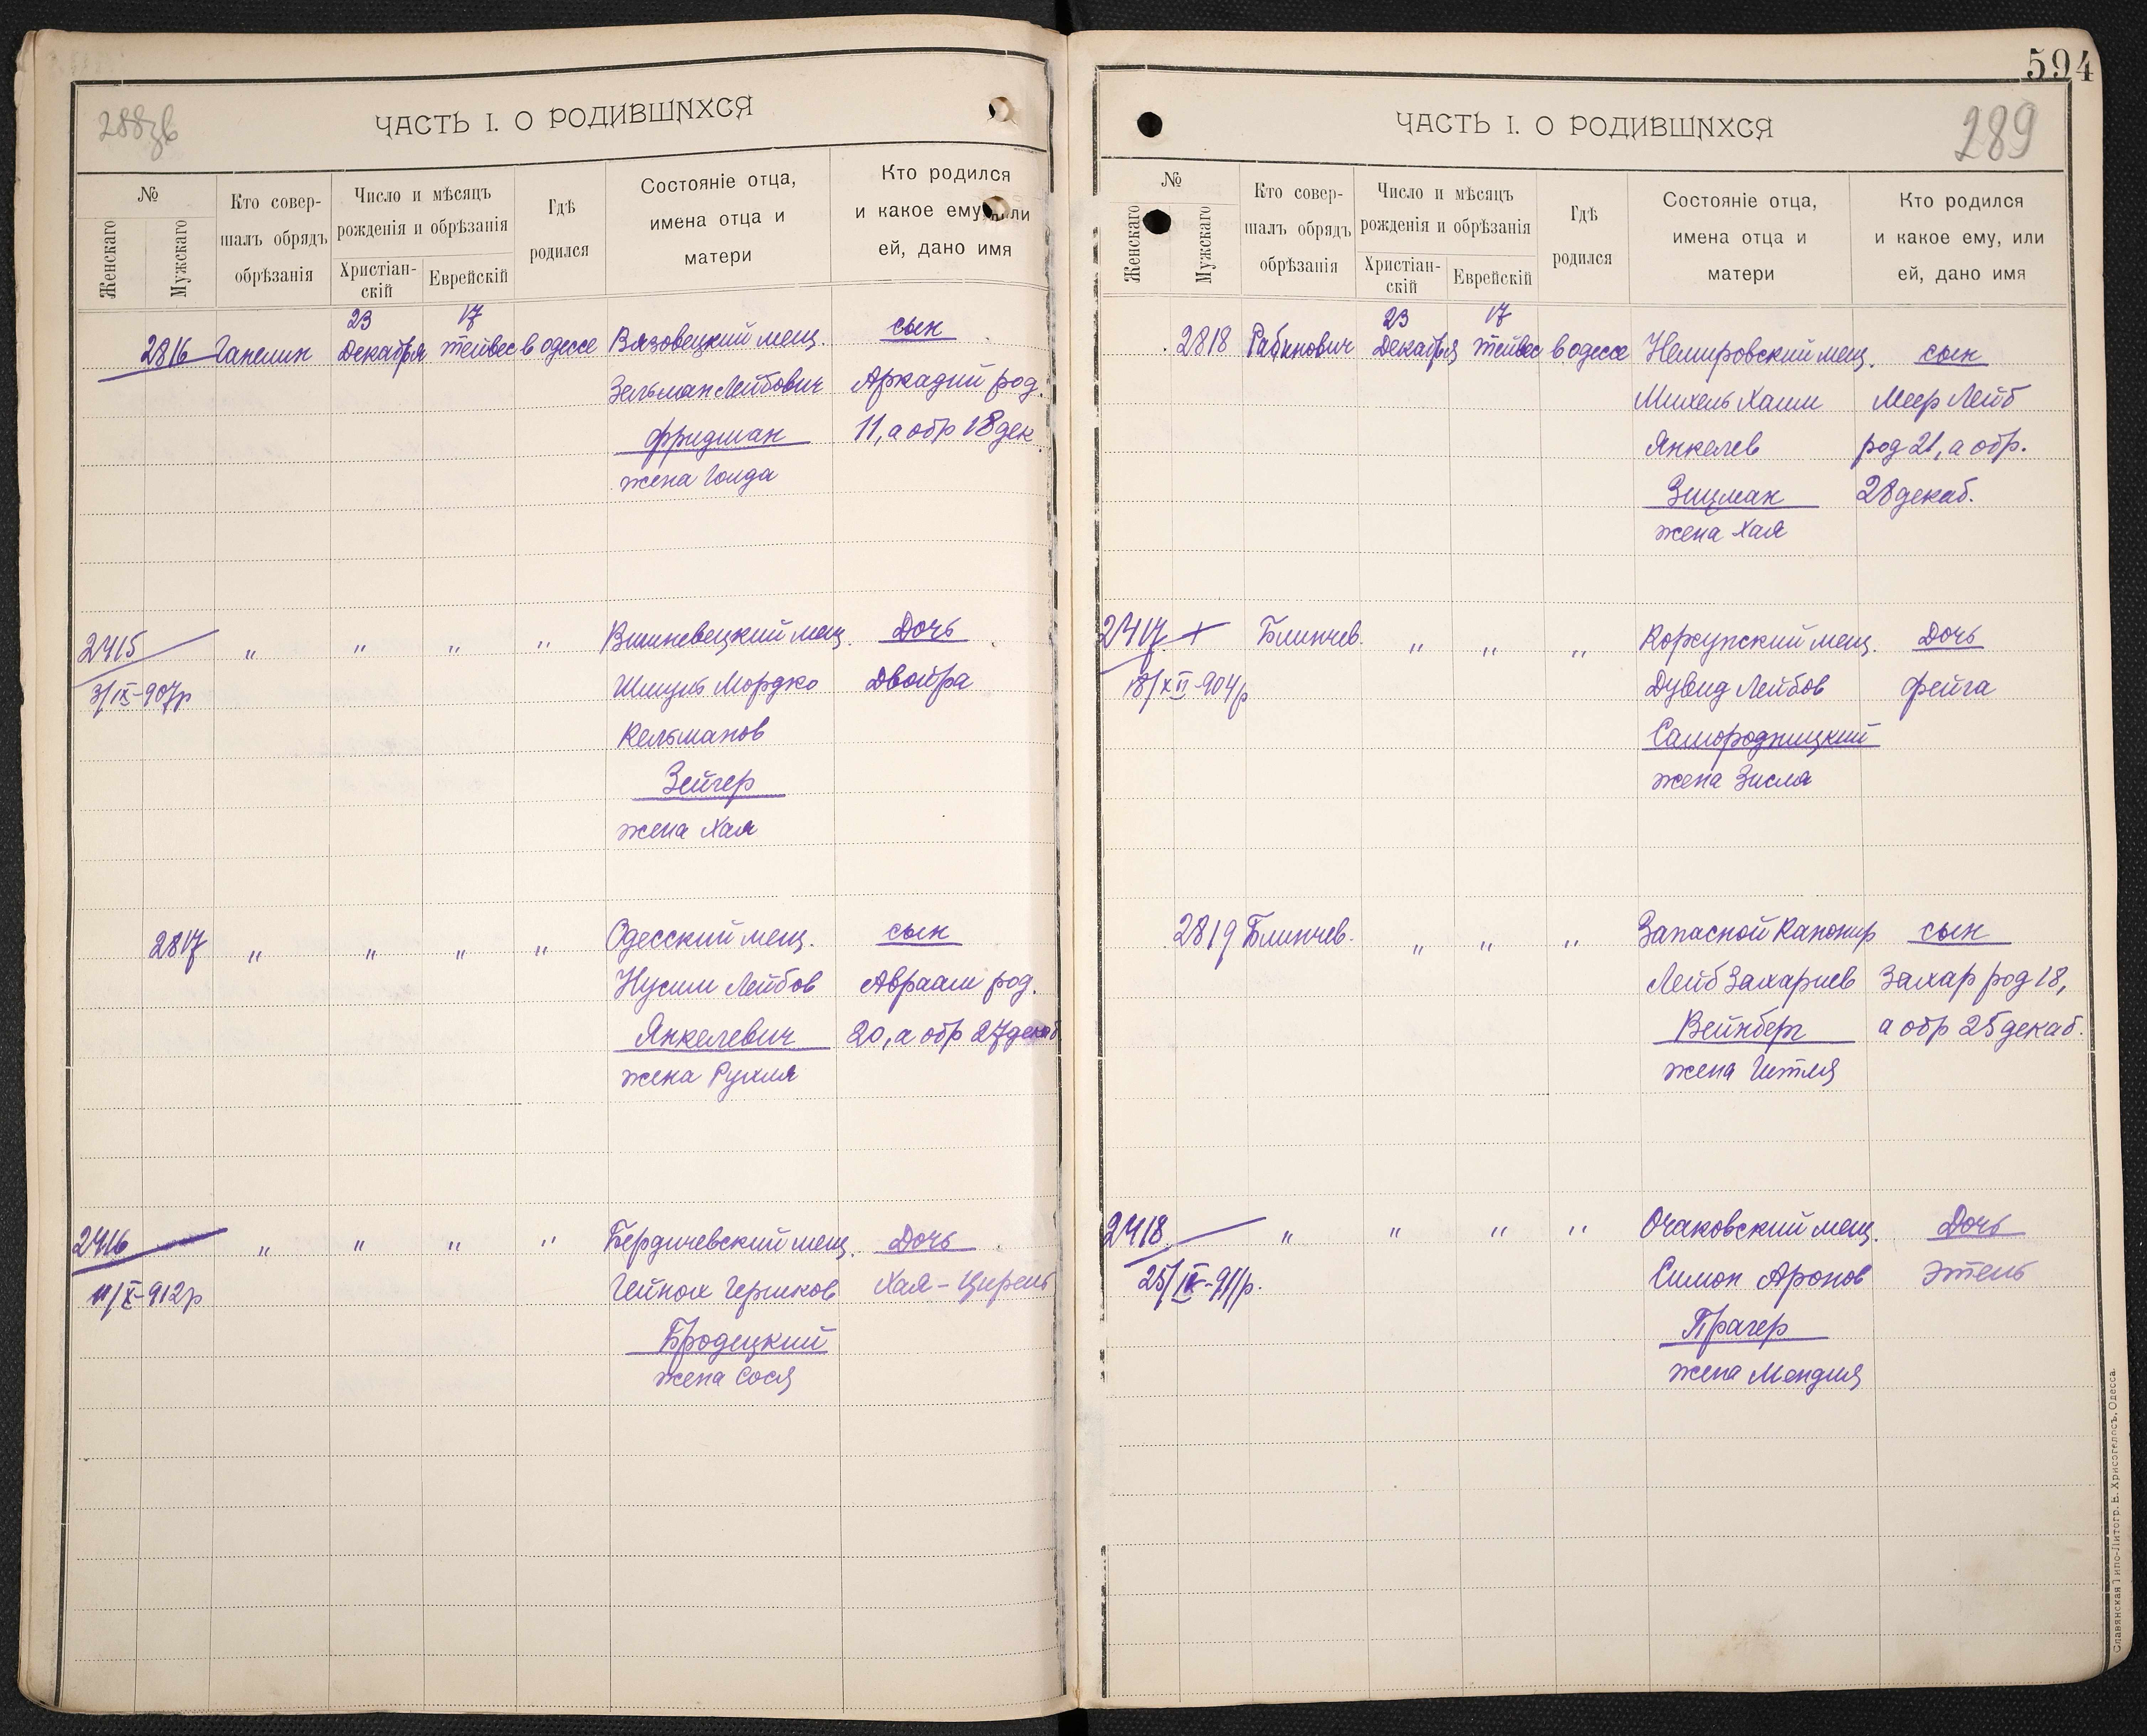 288 зв
ЧАСТЬ I. О РОДИВШИХСЯ
№
Женскаго
Мужскаго
Кто совер-
шалъ обрядъ
обрѣзанія
Число и мѣсяцъ
рожденія и обрѣзанія
Христіан-
скій
Еврейскій
Гдѣ
родился
Состояніе отца,
имена отца и
матери
Кто родился
и какое ему, или
ей, дано имя
23 17
2816 Ганелин Декабря Тейвес в одессе Вязовецкий мещ. сын
Зельман Лейбович Аркадий род.
Фридман 11, а обр 18 дек.
жена Голда
2415 " " " " Вишневецкий мещ. Дочь
3/IX-907р Шмуль Мордко Двойра
Кельманов
Зейгер
жена Хая
2817 " " " " Одесский мещ. сын
Нусим Лейбов Авраам род.
Янкелевич 20, а обр 27 декаб
жена Рухля
2416 " " " " Бердичевский мещ. Дочь
11/X-912р Гейнох Гершков Хая-Цирель
Бродецкий
жена Сося
594
289
ЧАСТЬ I. О РОДИВШИХСЯ
№
Женскаго
Мужскаго
Кто совер-
шалъ обрядъ
обрѣзанія
Число и мѣсяцъ
рожденія и обрѣзанія
Христіан-
скій
Еврейскій
Гдѣ
родился
Состояніе отца,
имена отца и
матери
Кто родился
и какое ему, или
ей, дано имя
23 17
2818 Рабинович Декабря Тейвес в одессе Немировский мещ. сын
Михель Хаим Меер Лейб
Янкелев род 21, а обр.
Зицман 28 декаб.
жена Хая
2417 + Блинчев. " " " Корсунский мещ. Дочь
18/XII-904р Дувид Лейбов Фейга
Самородницкий
жена Зисля
2819 Блинчев. " " " Запасной Канонир сын
Лейб Захариев Захар род 18,
Вейнберг а обр 25 декаб.
жена Гитля
2418 " " " " Очаковский мещ. Дочь
25/IX-911р. Симон Аронов Этель
Прагер
жена Мендля
Славянская Типо-Литогр. Е. Хрисогелосъ, Одесса.